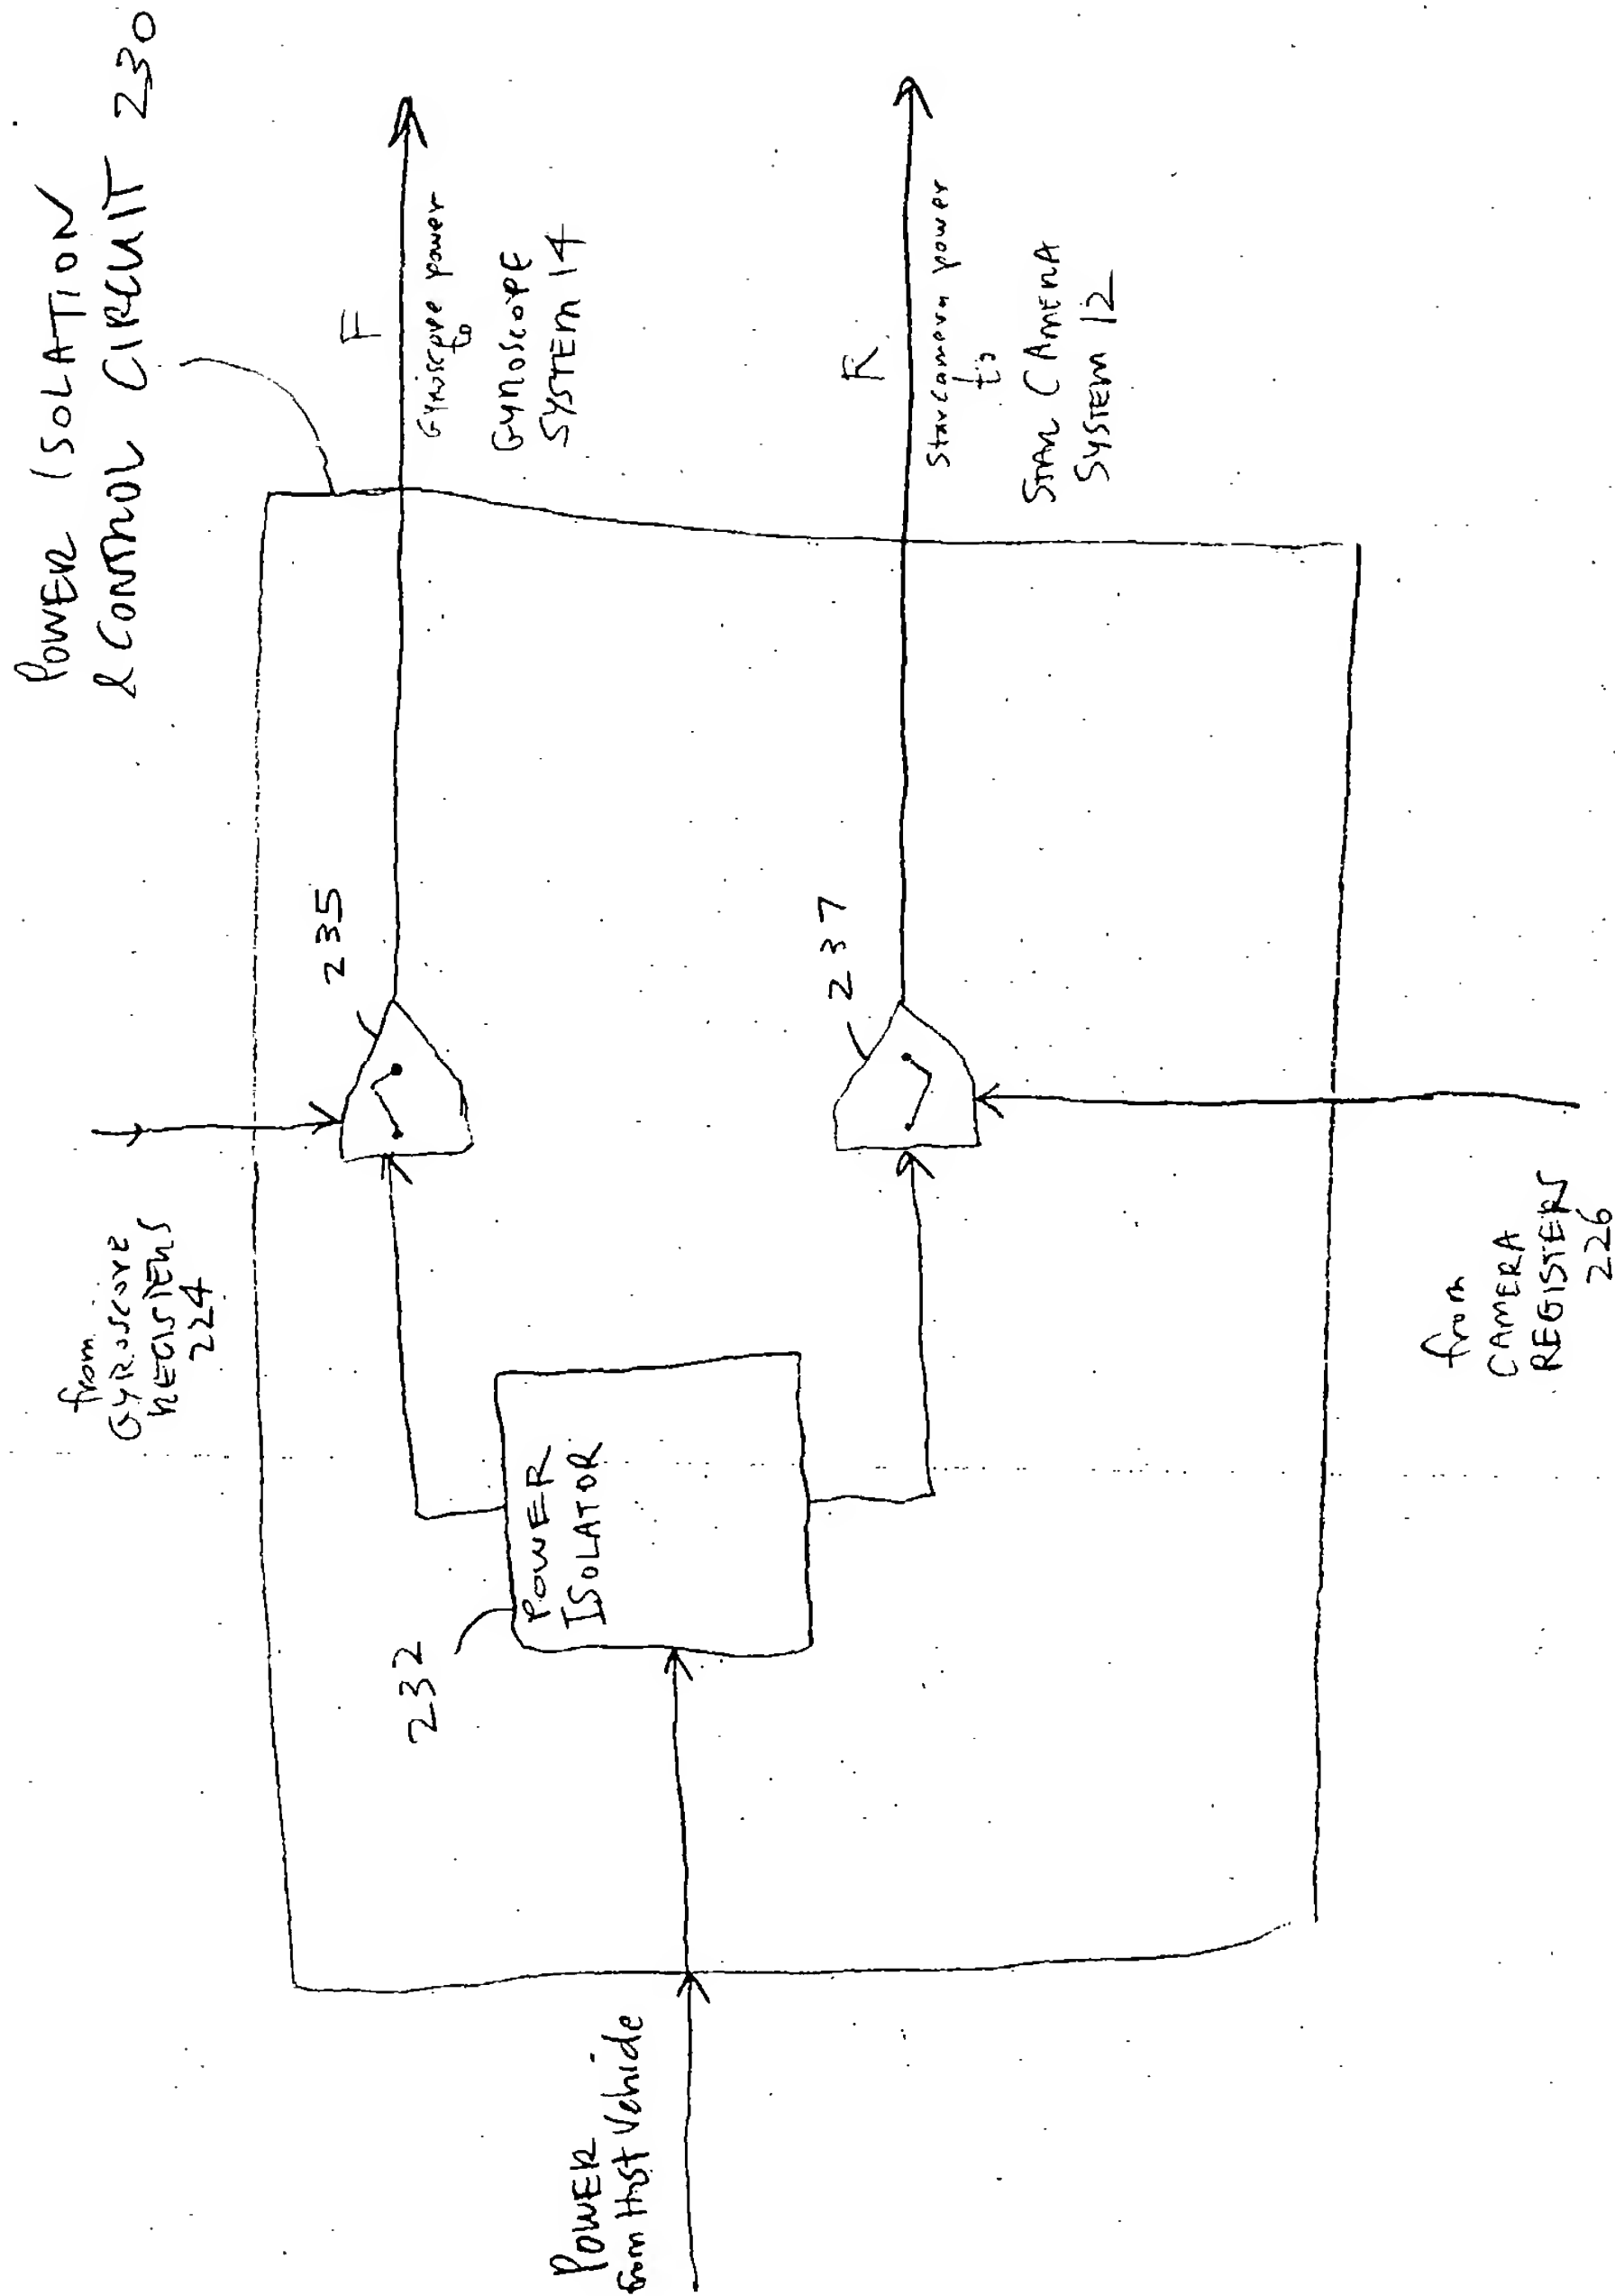 POWER ISOLATION
& CONTROL CIRCUIT 230
F
Gyroscope power
to
GYROSCOPE
SYSTEM 14
R
Star camera power
to
STAR CAMERA
SYSTEM 12
235
237
from
GYROSCOPE
REGISTERS
224
from
CAMERA
REGISTERS
226
232
POWER
ISOLATOR
POWER
from Host Vehicle